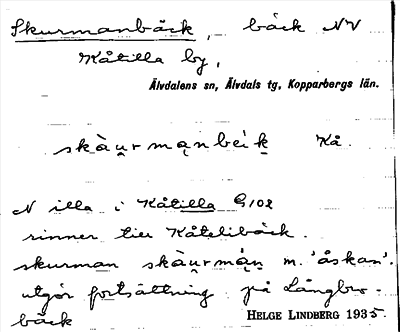 Skurmanbäck, bäck NV
Kåtilla by,
Älvdalens sn, Älvdals tg, Kopparbergs län.
skàu̯rmạnbeìk Kå.
N illa i Kåtilla G102
rinner till Kåtillbäck.
skurman skàu̯rmạn m. 'åskan'.
utgör fortsättning på Långbro-
bäck
HELGE LINDBERG 1935.